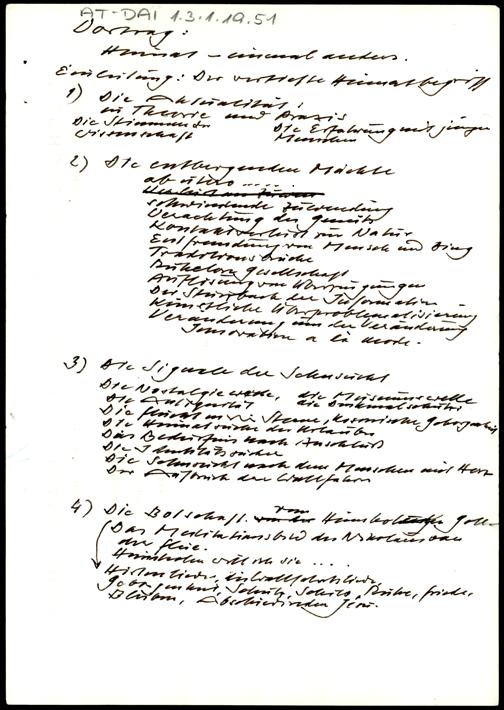 AT-DAI 1.3.1.19.51
Vortrag:
Heimat – einmal anders.
Einleitung: Der vertiefte Heimatbegriff
1) Die Aktualität:
in Theorie und Praxis
Die Stimmen der Die Erfahrung mit jungen
Wissenschaft Menschen
2) Die entbergenden Mächte
ab utero .....
schwindende Zuwendung
Verachtung des Gemüts
Kontaktverlust zur Natur
Entfremdung von Mensch und Ding
Traditionsbrüche
Gesellschaft
Auflösung von Überzeugungen
Der Sturzbach der Information
Künstliche Überproblematisierung
Veränderung um der Veränderung
Innovation a la mode.
3) Die Signale der Sehnsucht
Die Nostalgiewelle, die Museumswelle
Die Antiquität die Denkmalschutz
Die Flucht in die Sterne, kosmische Geborgenheit
Die Heimatsuche der Urlauber
Das Bedürfnis nach Anschluß
Die Identitätssuche
Die Sehnsucht nach dem Menschen mit Herz
Der Aufbruch der Wallfahrer
4) Die Botschaft vom
Das Meditationsbild des Nikolaus von
der Flüe.
Heimholen will ich sie ....
Hirtenlieder,
Geborgenheit, Schutz, Schild, Ruhe, Friede,
Bleiben,